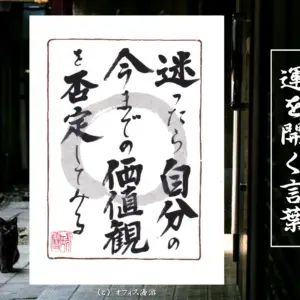 迷ったら自分の
今までの価値観
を否定してみる
運を開く言葉
(c) オフィス湯沼